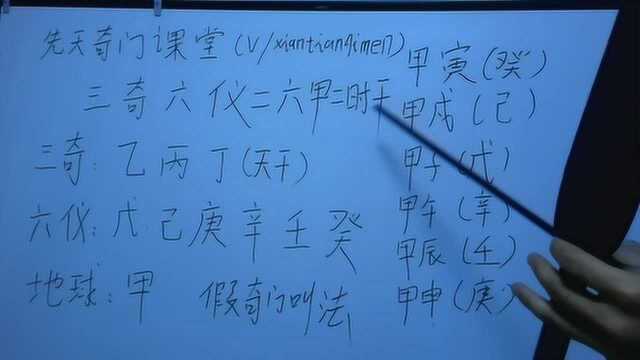 先天奇门课堂(V/xiantianqimen)
三奇六仪=六甲=时干
三奇:乙丙丁(天干)
六仪:戊己庚辛壬癸
地球:甲 假奇门叫法
甲寅(癸)
甲戌(己)
甲子(戊)
甲午(辛)
甲辰(壬)
甲申(庚)